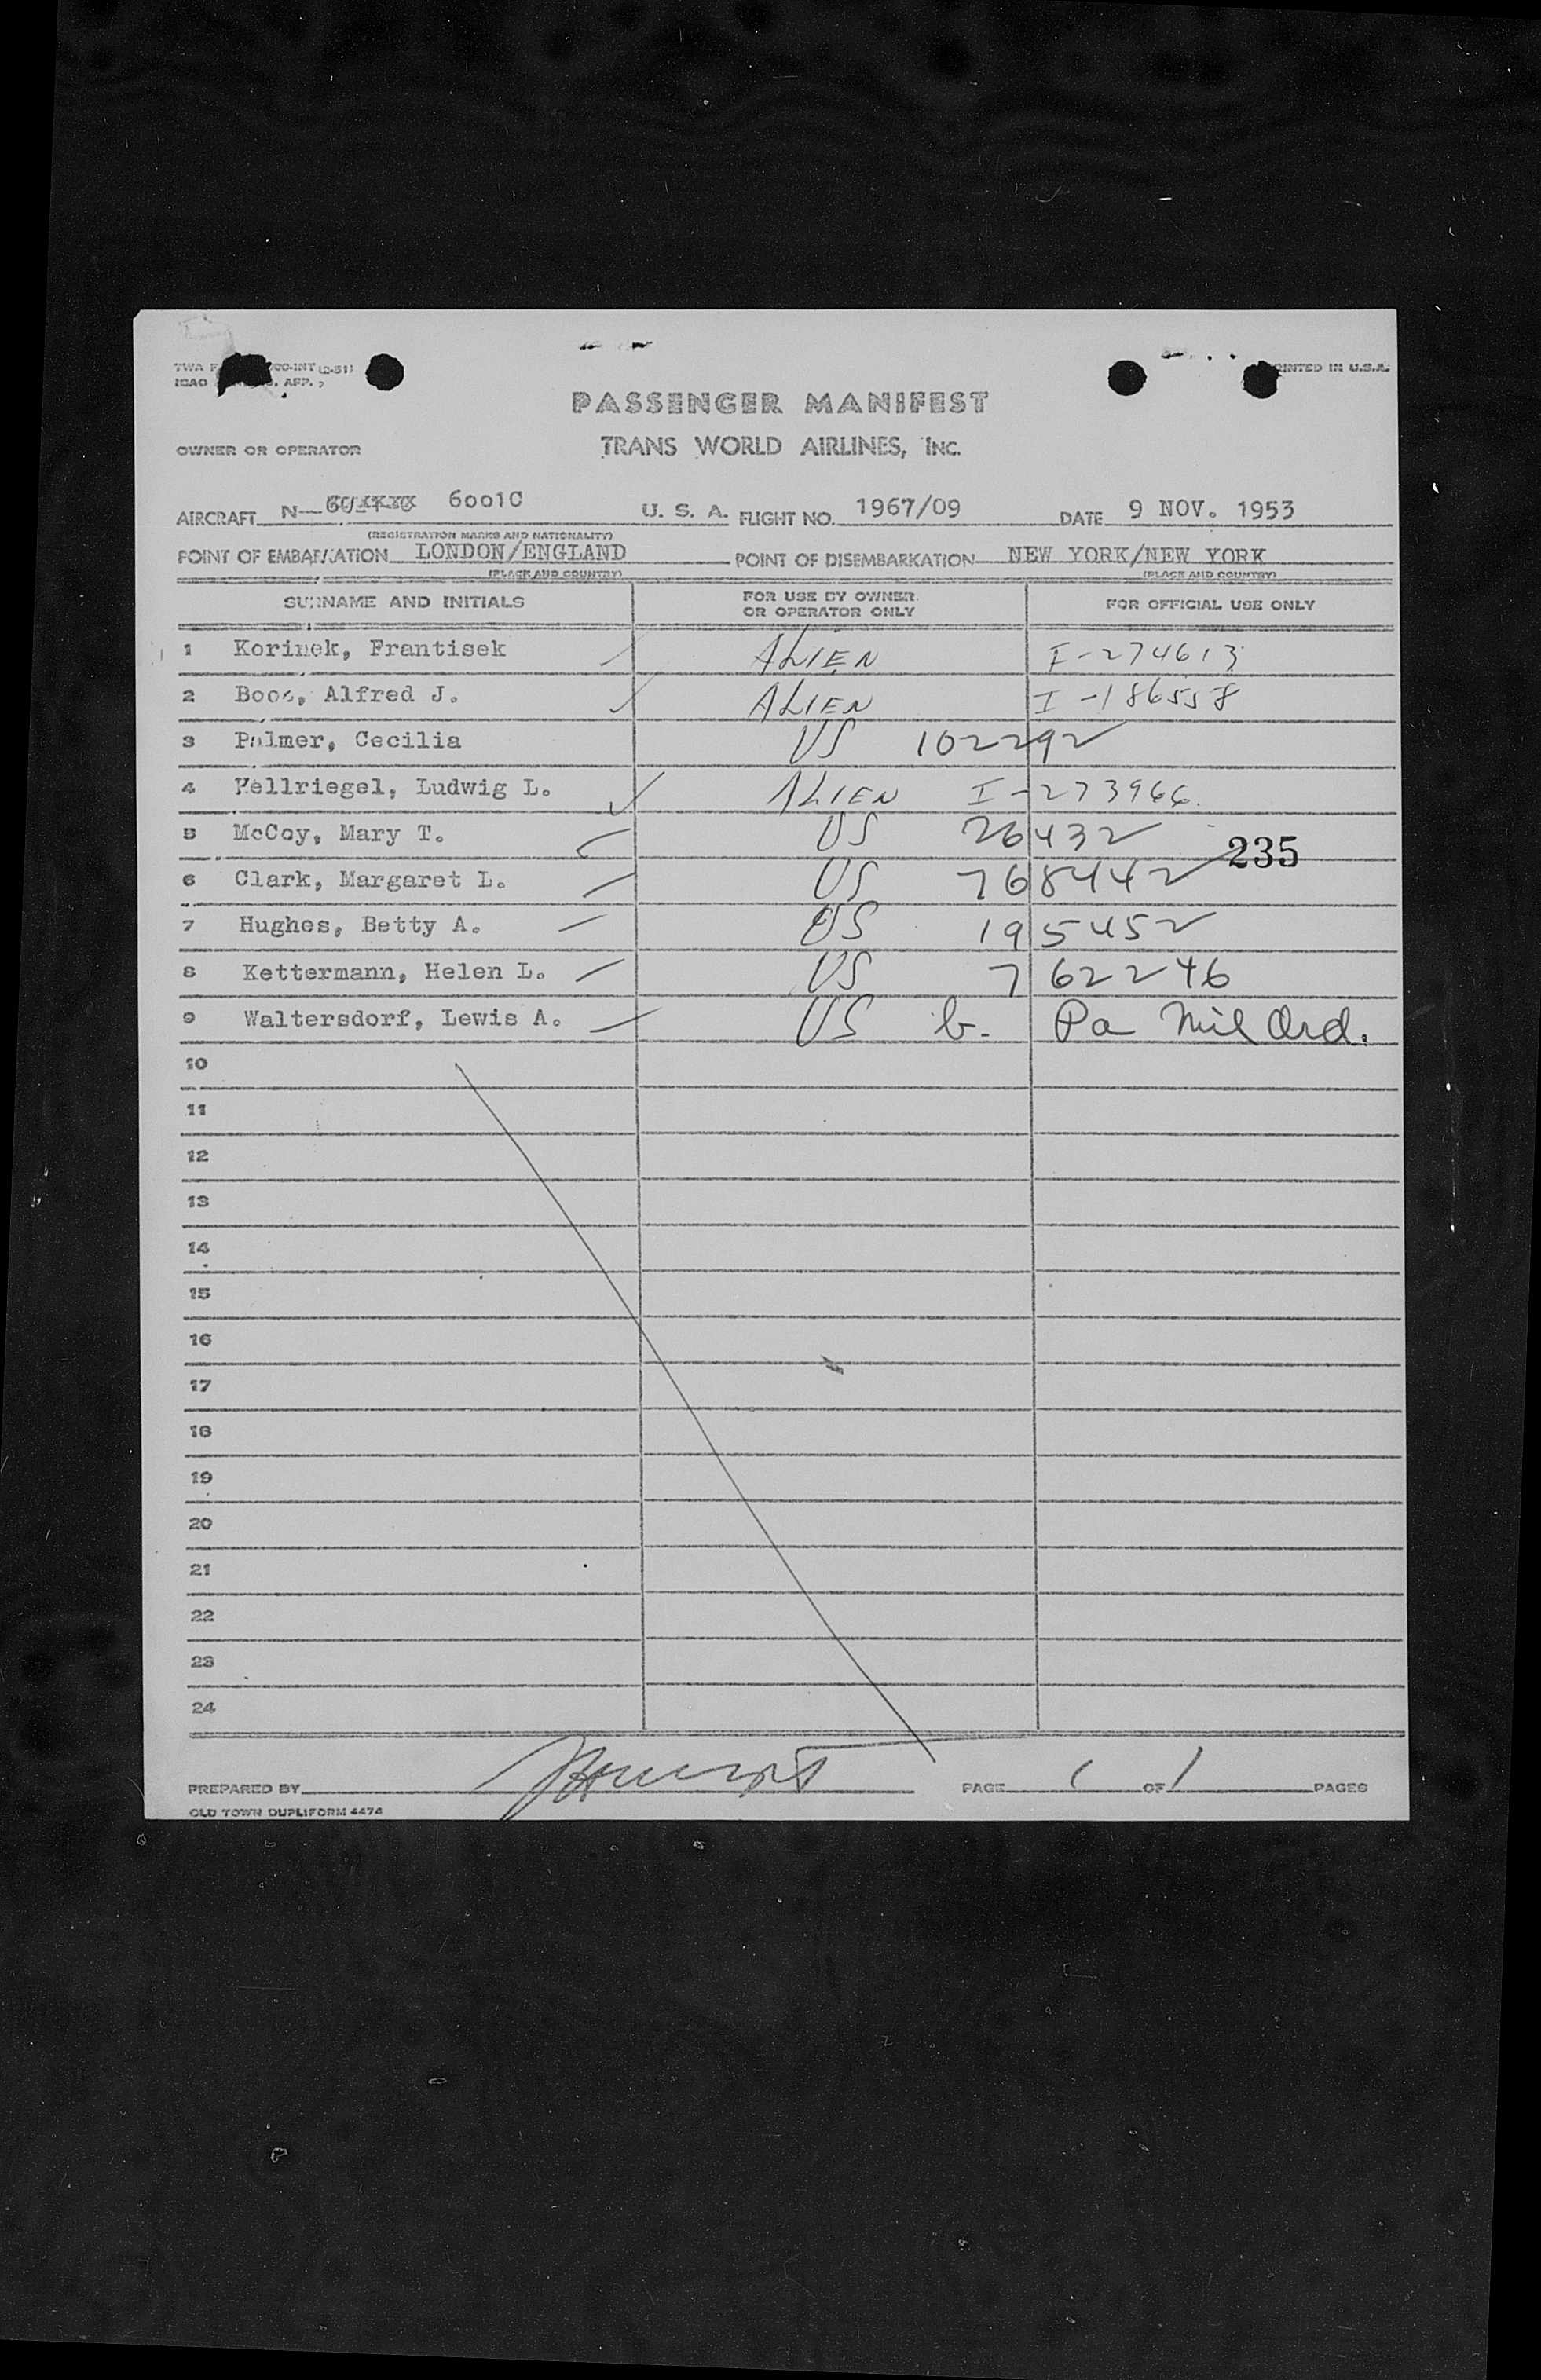 TWA F CO-INT (2-51)
ICAO APP. 2
PRINTED IN U.S.A.
PASSENGER MANIFEST
OWNER OR OPERATOR TRANS WORLD AIRLINES, INC.
AIRCRAFT N— 6001C U. S. A. FLIGHT NO. 1967/09 DATE 9 NOV. 1953
(REGISTRATION MARKS AND NATIONALITY)
POINT OF EMBARKATION LONDON/ENGLAND POINT OF DISEMBARKATION NEW YORK/NEW YORK
(PLACE AND COUNTRY) (PLACE AND COUNTRY)
SURNAME AND INITIALS FOR USE BY OWNER OR OPERATOR ONLY FOR OFFICIAL USE ONLY
1 Korinek, Frantisek ALIEN I-274613
2 Alfred J. ALIEN I-186558
3 Palmer, Cecilia US 102292
4 Hellriegel, Ludwig L. ALIEN I-273966
5 McCoy, Mary T. US 26432
235
6 Clark, Margaret L. US 768442
7 Hughes, Betty A. US 195452
8 Kettermann, Helen L. US 762246
9 Waltersdorf, Lewis A. US b. Pa Mil Ord.
10
11
12
13
14
15
16
17
18
19
20
21
22
23
24
PREPARED BY PAGE 1 OF 1 PAGES
OLD TOWN DUPLIFORM 4474